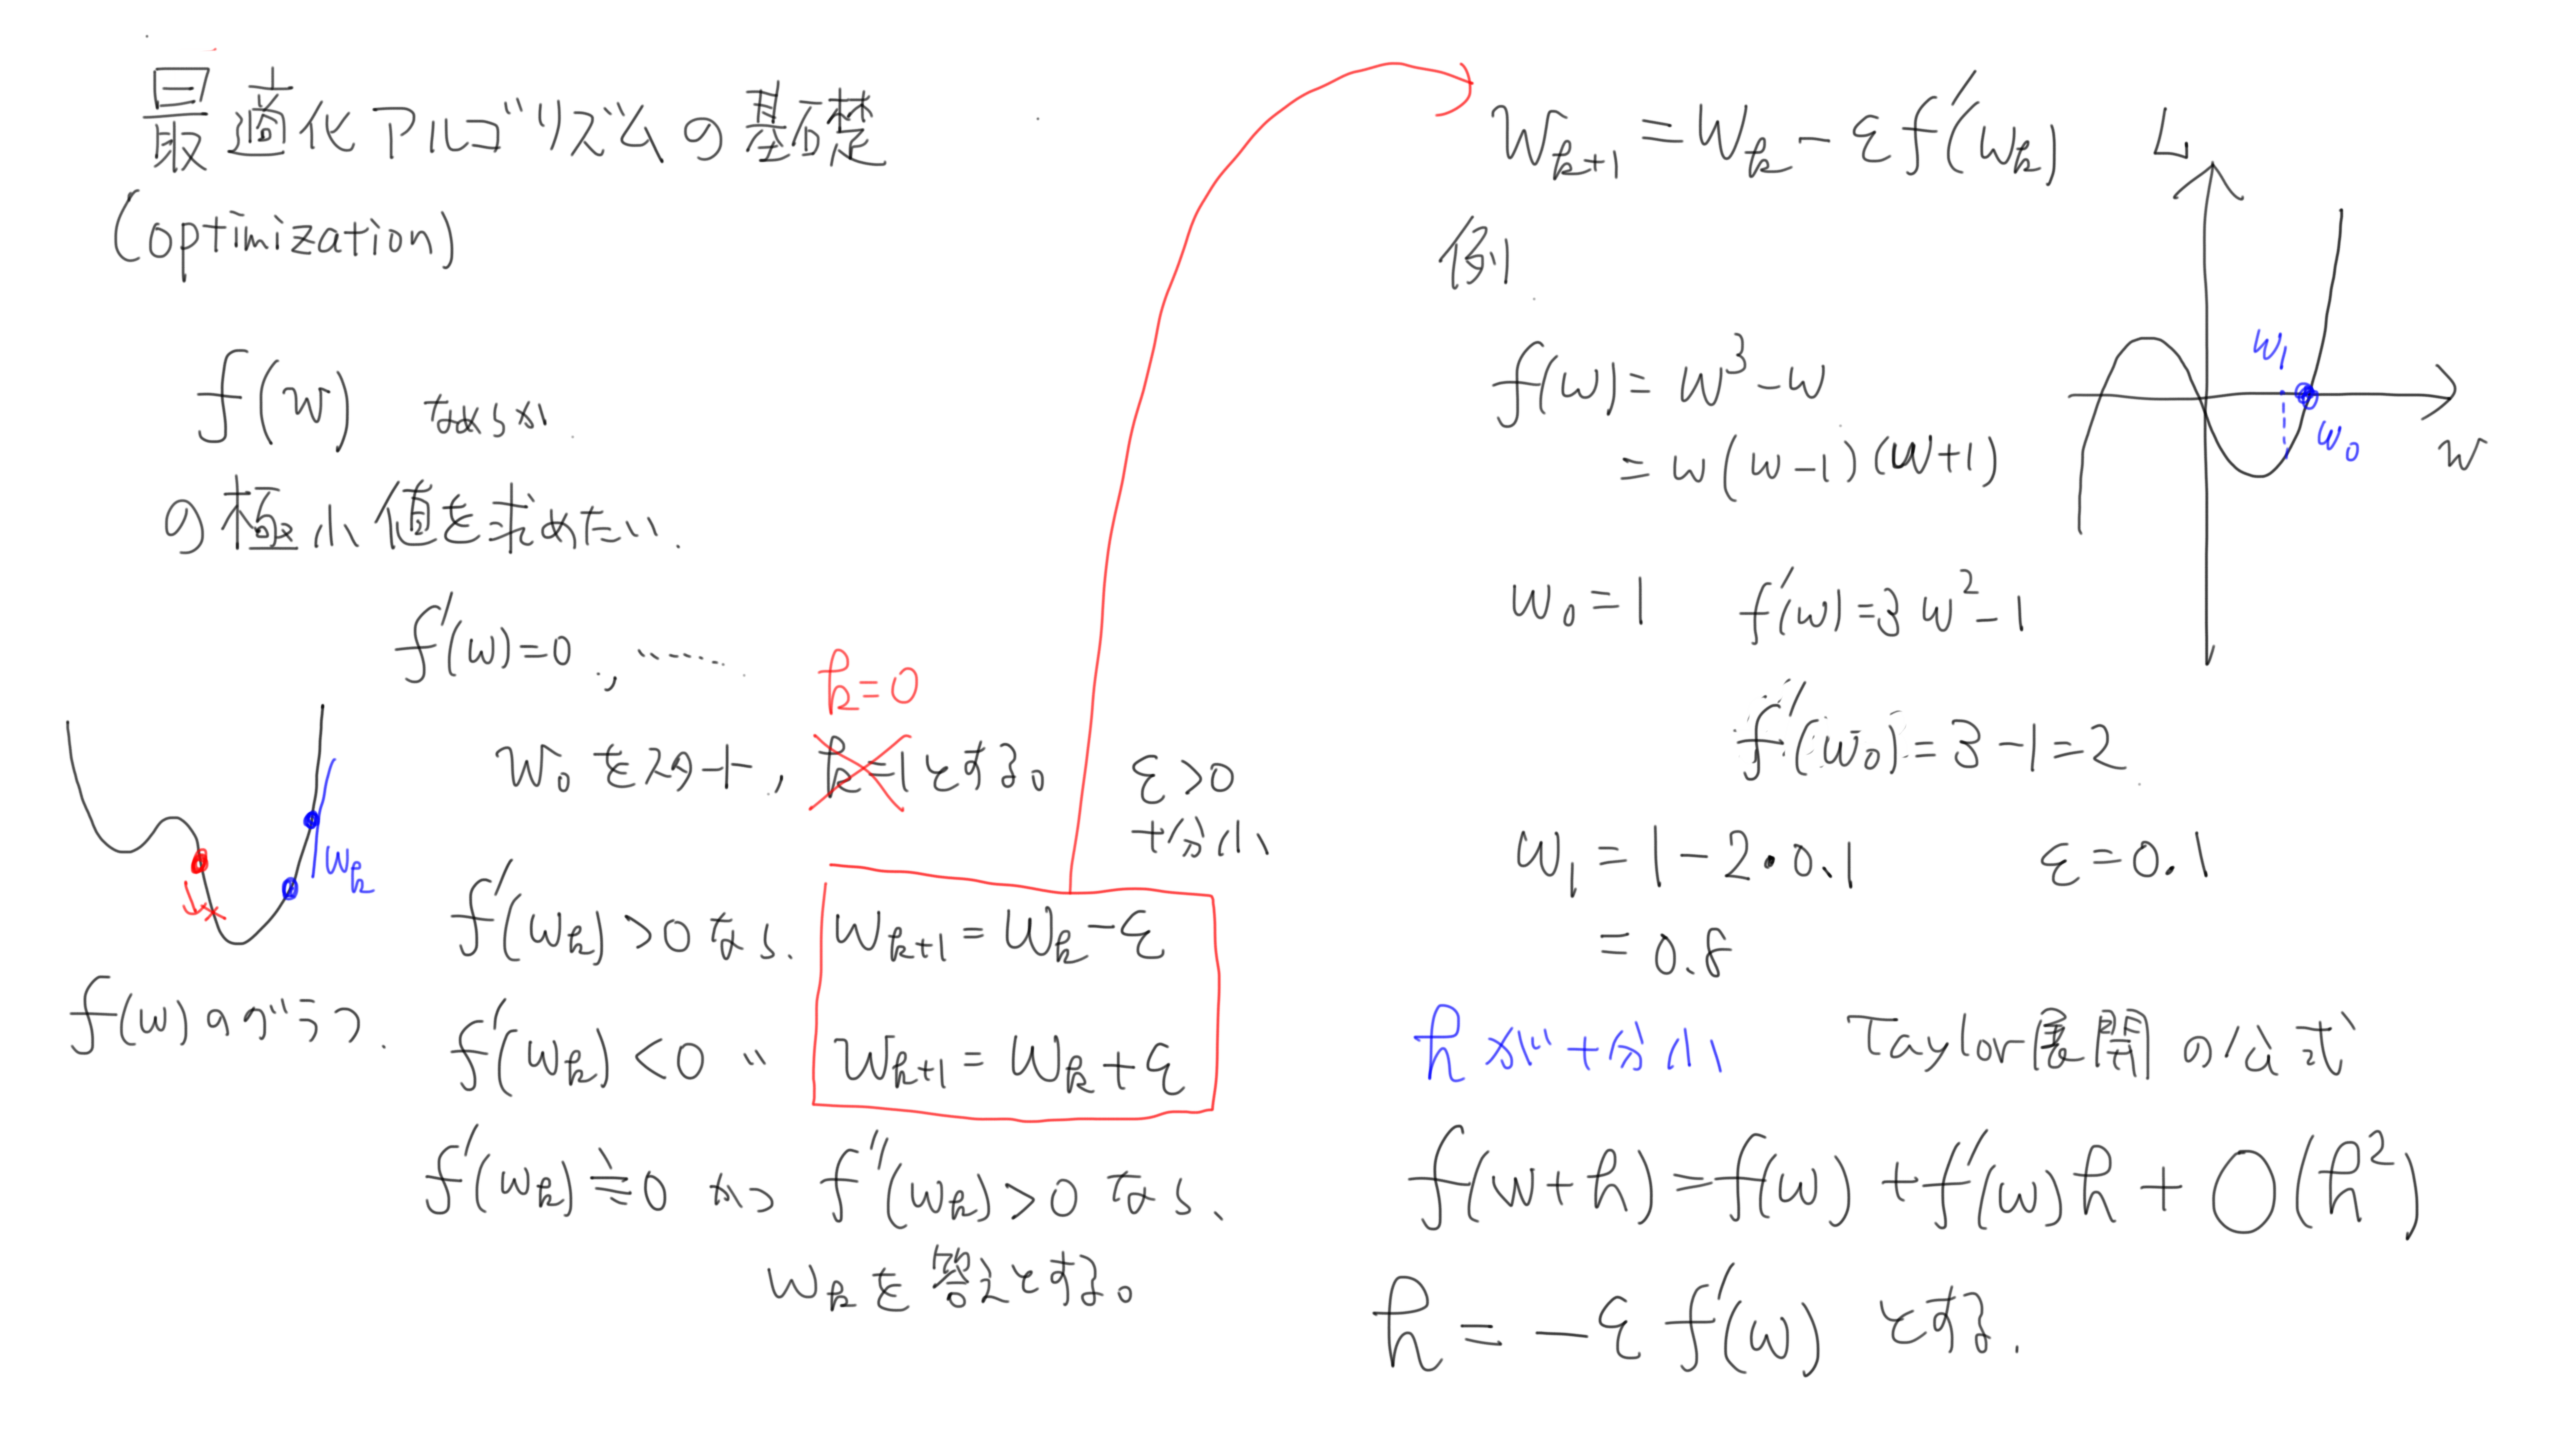 最適化アルゴリズムの基礎
(optimization)
f(w) なめらか
の極小値を求めたい.
f'(w)=0 .,……
k=0
w₀をスタート, k=1とする。
ε>0
十分小
wₖ
f(w)のグラフ.
f'(wₖ)>0なら. wₖ₊₁=wₖ-ε
f'(wₖ)<0 〃 wₖ₊₁=wₖ+ε
f'(wₖ)≒0 かつ f''(wₖ)>0なら、
wₖを答えとする。
wₖ₊₁=wₖ-εf'(wₖ)
例
f(w)=w³-w
=w(w-1)(w+1)
L
w₁
w₀
w
w₀=1 f'(w)=3w²-1
f'(w₀)=3-1=2
w₁=1-2・0.1 ε=0.1
=0.8
hが十分小 Taylor展開の公式
f(w+h)=f(w)+f'(w)h+O(h²)
h=-εf'(w) とする.